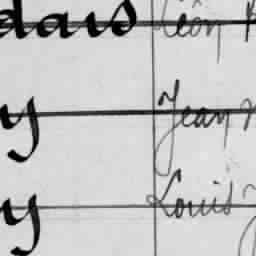 dais Léon
y Jean
y Louis